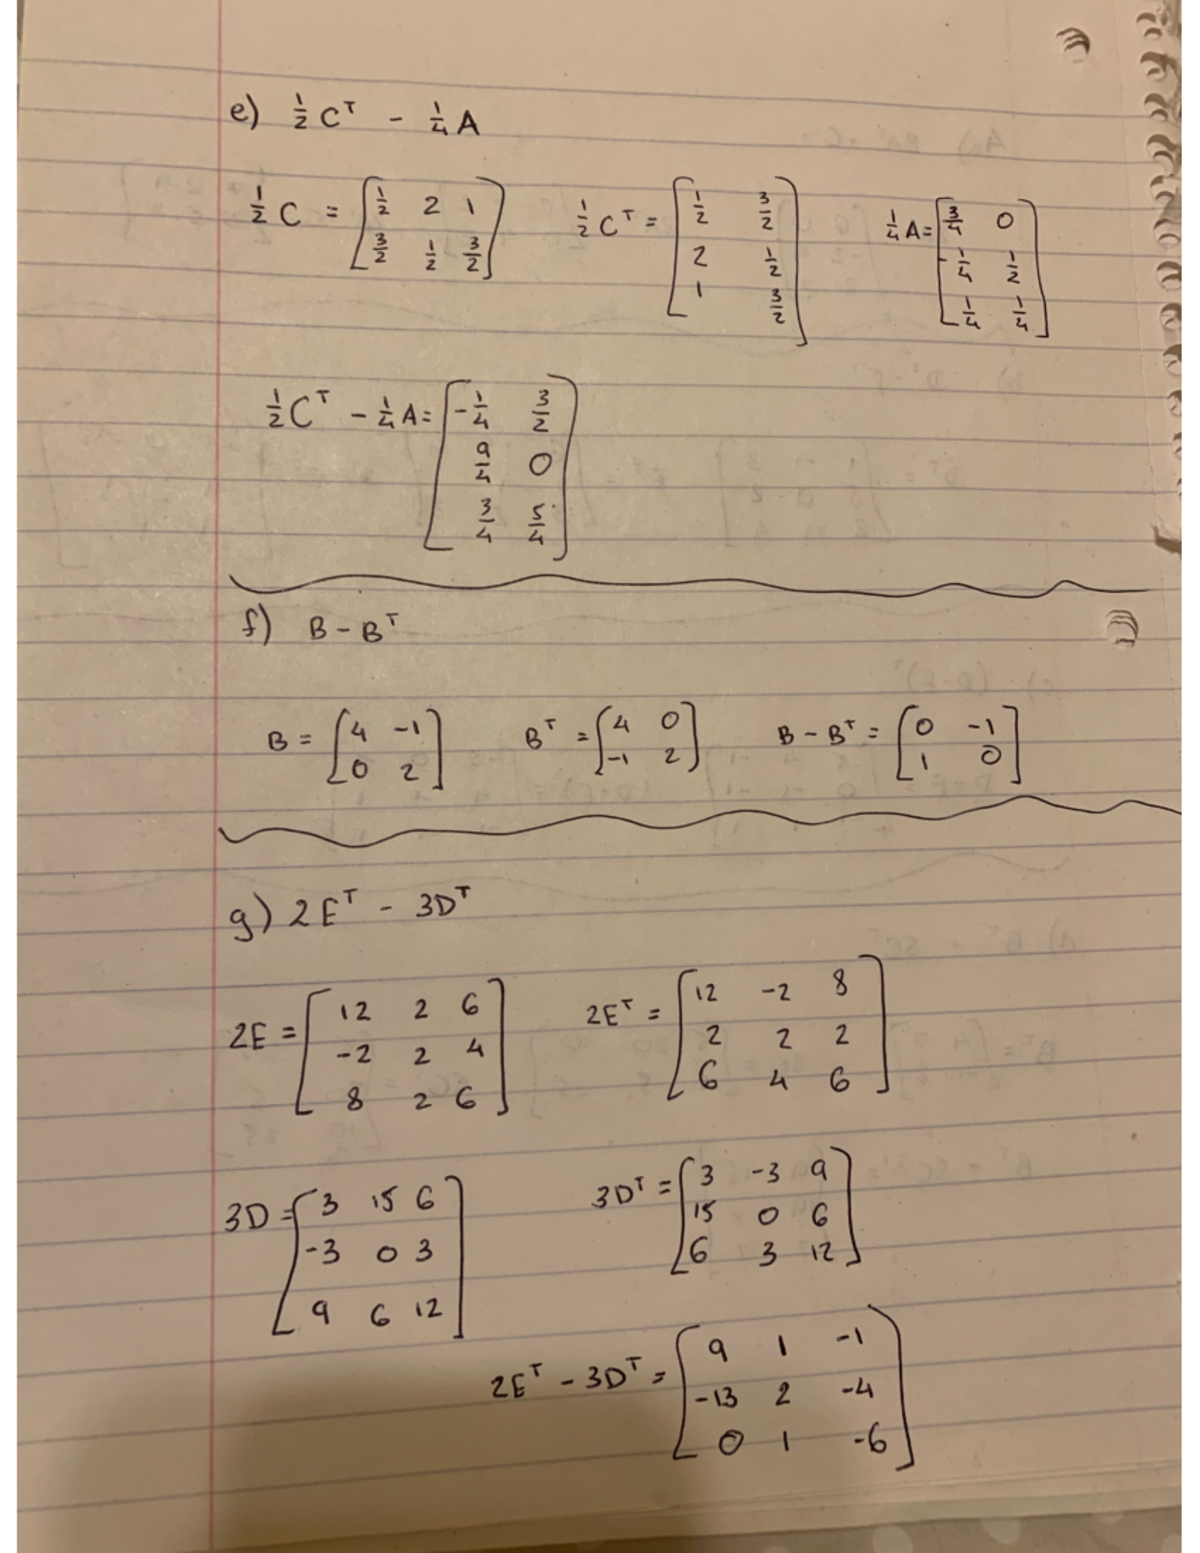 e) ½ Cᵀ - ¼ A
½ C = [½ 2 1
3/2 ½ 3/2]
½ Cᵀ = [½ 3/2
2 ½
1 3/2]
¼ A = [¾ 0
-¼ ½
¼ ¼]
½ Cᵀ - ¼ A = [-¼ 3/2
9/4 0
¾ 5/4]
f) B - Bᵀ
B = [4 -1
0 2]
Bᵀ = [4 0
-1 2]
B - Bᵀ = [0 -1
1 0]
g) 2Eᵀ - 3Dᵀ
2E = [12 2 6
-2 2 4
8 2 6]
2Eᵀ = [12 -2 8
2 2 2
6 4 6]
3D = [3 15 6
-3 0 3
9 6 12]
3Dᵀ = [3 -3 9
15 0 6
6 3 12]
2Eᵀ - 3Dᵀ = [9 1 -1
-13 2 -4
0 1 -6]